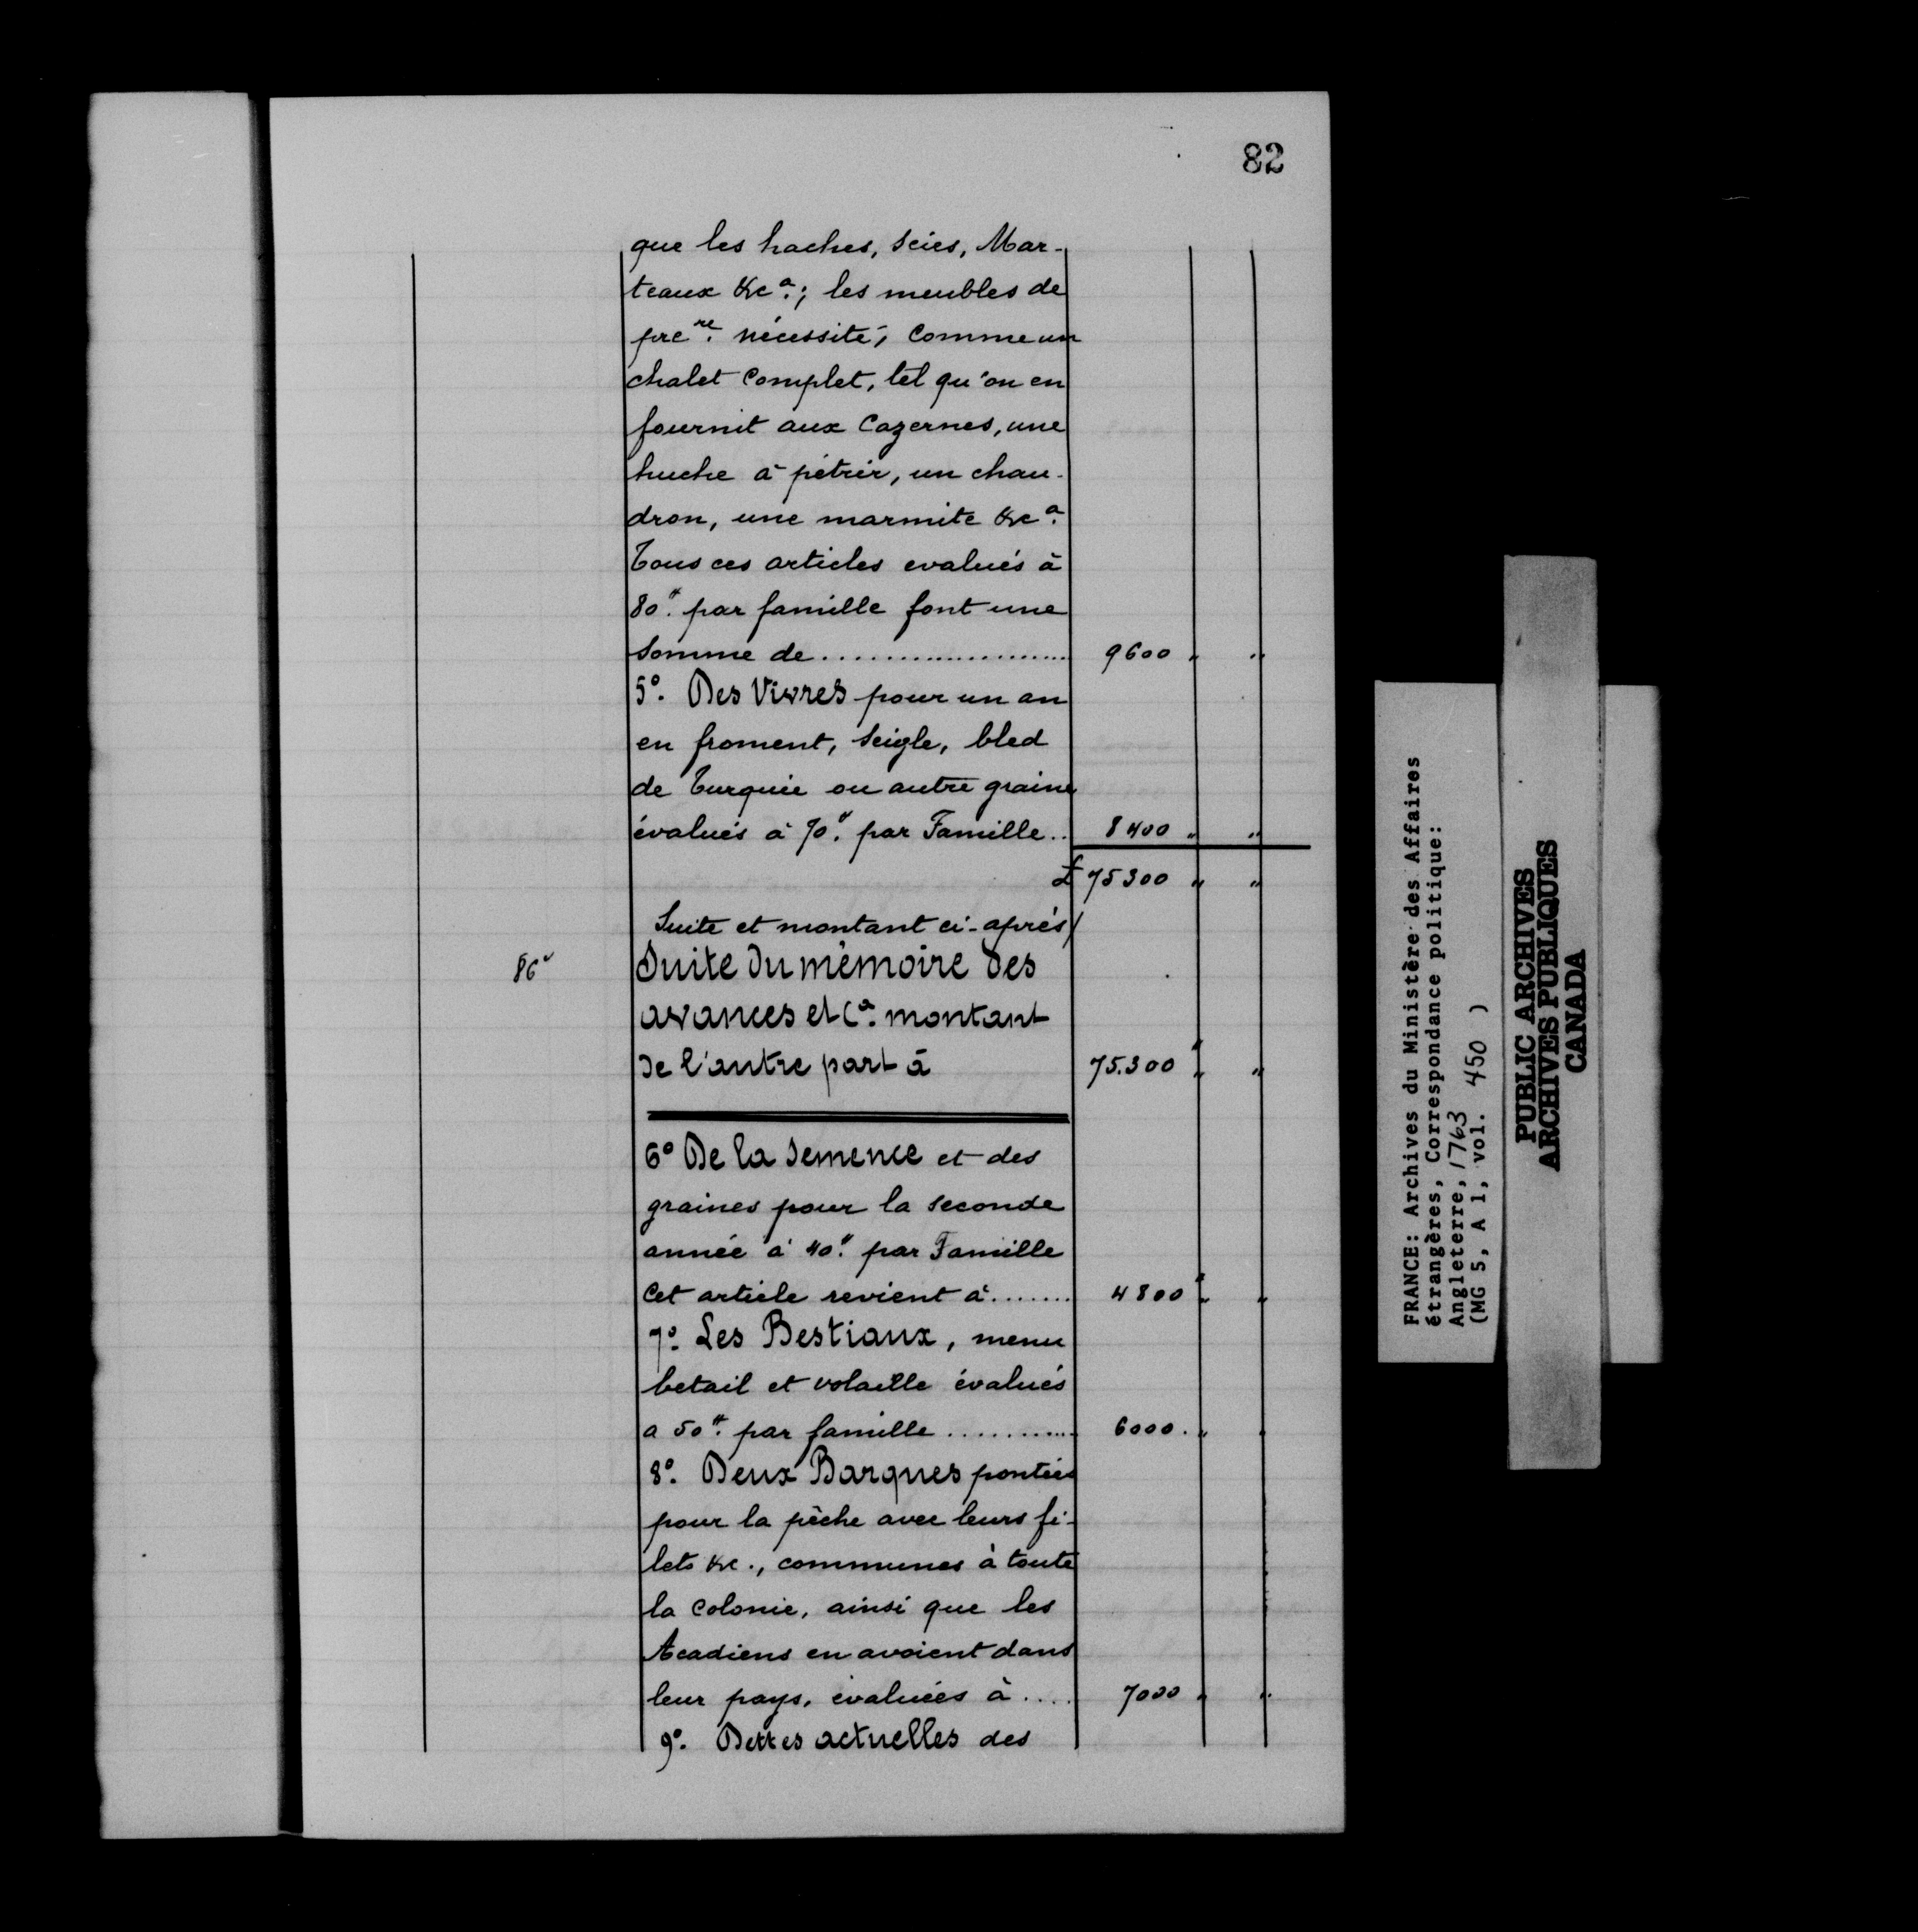 82
que les haches, scies, Mar-
teaux &cª.; les meubles de
pre.re nécessité, Comme un
chalet Complet, tel qu'on en
fournit aux Cazernes, une
huche à pétrir, un chau-
dron, une marmite &cª.
Tous ces articles evalués à
80#. par famille font une
somme de..................... 9600 " "
5º. Des Vivres pour un an
en froment, seigle, bled
de Turquie ou autre graine
évalués à 70#. par Famille.. 8400 " "
£ 75300 " "
Suite et montant ci-après/
86v Suite du mémoire des
avances et Cª. montant
de l'autre part à 75.300 " "
6º De la Semence et des
graines pour la seconde
année à 40#. par Famille
Cet article revient à....... 4800 " "
7º. Les Bestiaux, menu
betail et volaille évalués
a 50#. par famille........... 6000. " "
8º. Deux Barques pontées
pour la pèche avec leurs fi-
lets &c., communes à toute
la Colonie, ainsi que les
Acadiens en avoient dans
leur pays, évaluées à.... 7000 " "
9º. Dettes actuelles des
FRANCE: Archives du Ministère des Affaires
étrangères, Correspondance politique:
Angleterre, 1763
(MG 5, A 1, vol. 450 )
PUBLIC ARCHIVES
ARCHIVES PUBLIQUES
CANADA